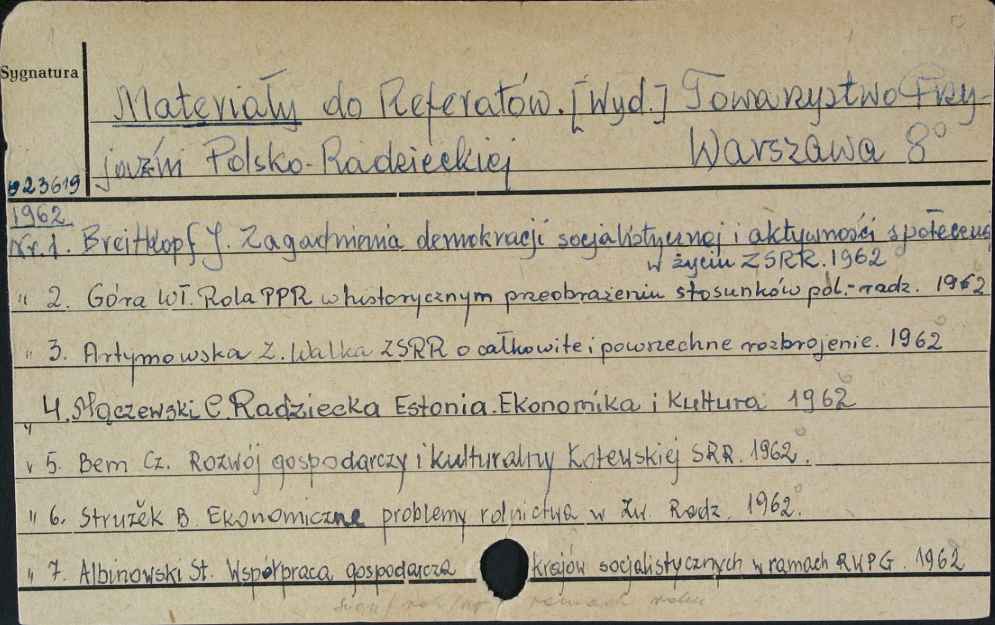 Sygnatura
Materiały do Referatów. [Wyd.] Towarzystwo Przy-
jaźni Polsko-Radzieckiej Warszawa 8°
023619
1962
Nr. 1. Breitkopf J. Zagadnienia demokracji socjalistycznej i aktywności społeczeń
w życiu ZSRR. 1962
" 2. Góra Wł. Rola PPR w historycznym przeobrażeniu stosunków pol.-radz. 1962
" 3. Artymowska Z. Walka ZSRR o całkowite i powszechne rozbrojenie. 1962
" 4. Słączewski C. Radziecka Estonia. Ekonomika i Kultura 1962
" 5. Bem Cz. Rozwój gospodarczy i kulturalny Łotewskiej SRR. 1962.
" 6. Strużek B. Ekonomiczne problemy rolnictwa w Zw. Radz. 1962.
" 7. Albinowski St. Współpraca gospodarcza krajów socjalistycznych w ramach RWPG. 1962